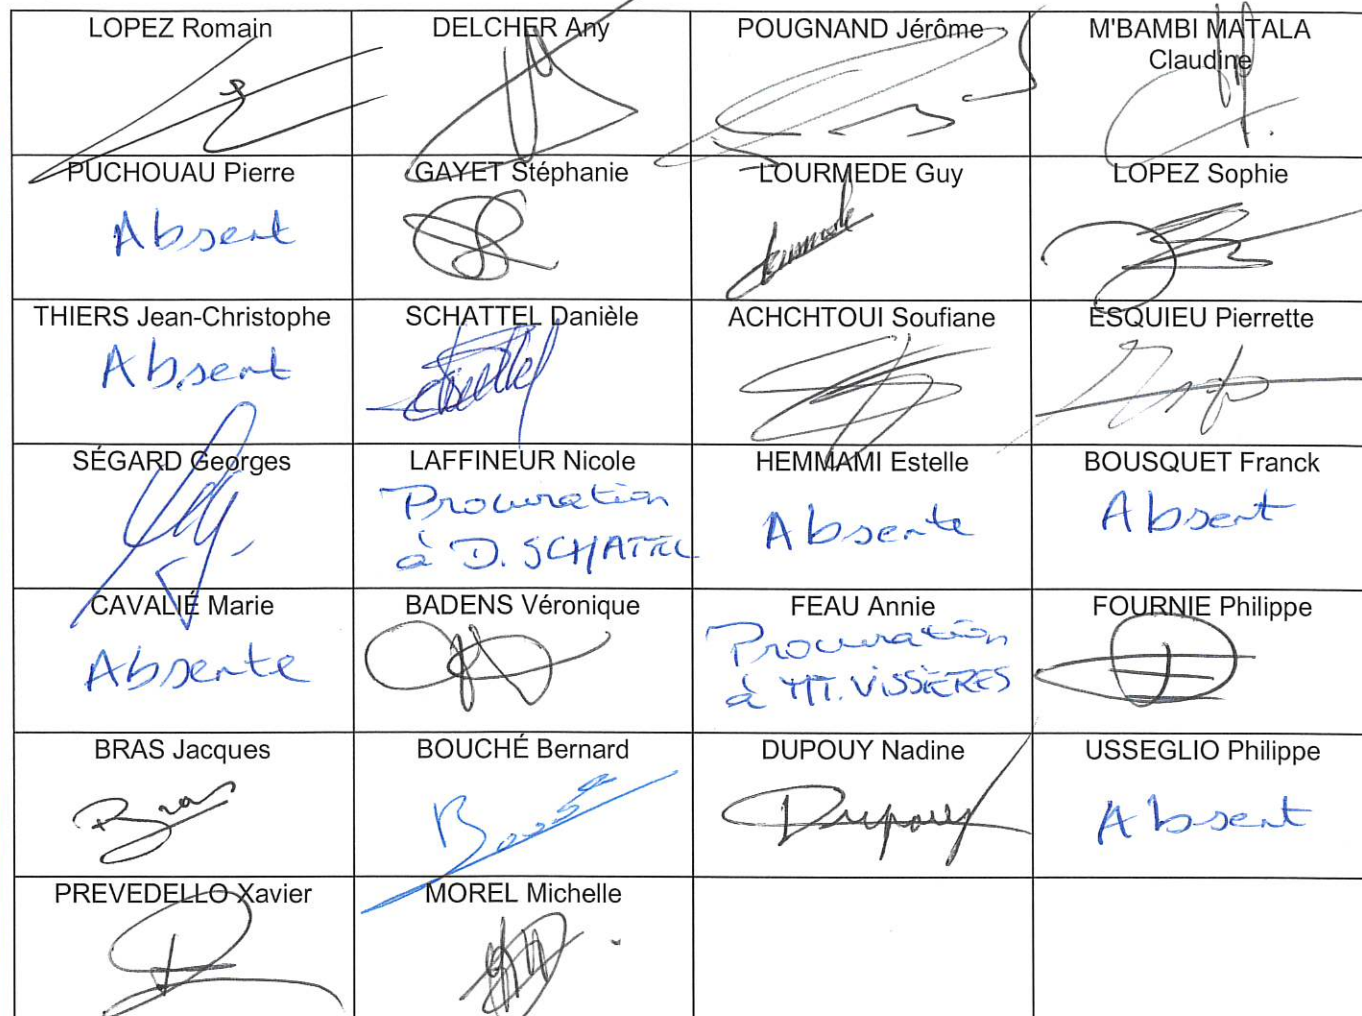 LOPEZ Romain
DELCHER Any
POUGNAND Jérôme
M'BAMBI MATALA
Claudine
PUCHOUAU Pierre
Absent
GAYET Stéphanie
LOURMEDE Guy
LOPEZ Sophie
THIERS Jean-Christophe
Absent
SCHATTEL Danièle
ACHCHTOUI Soufiane
ESQUIEU Pierrette
SÉGARD Georges
LAFFINEUR Nicole
Procuration
à D. SCHATTEL
HEMMAMI Estelle
Absente
BOUSQUET Franck
Absent
CAVALIÉ Marie
Absente
BADENS Véronique
FEAU Annie
Procuration
à VISSIERES
FOURNIE Philippe
BRAS Jacques
Bras
BOUCHÉ Bernard
DUPOUY Nadine
Dupouy
USSEGLIO Philippe
Absent
PREVEDELLO Xavier
MOREL Michelle